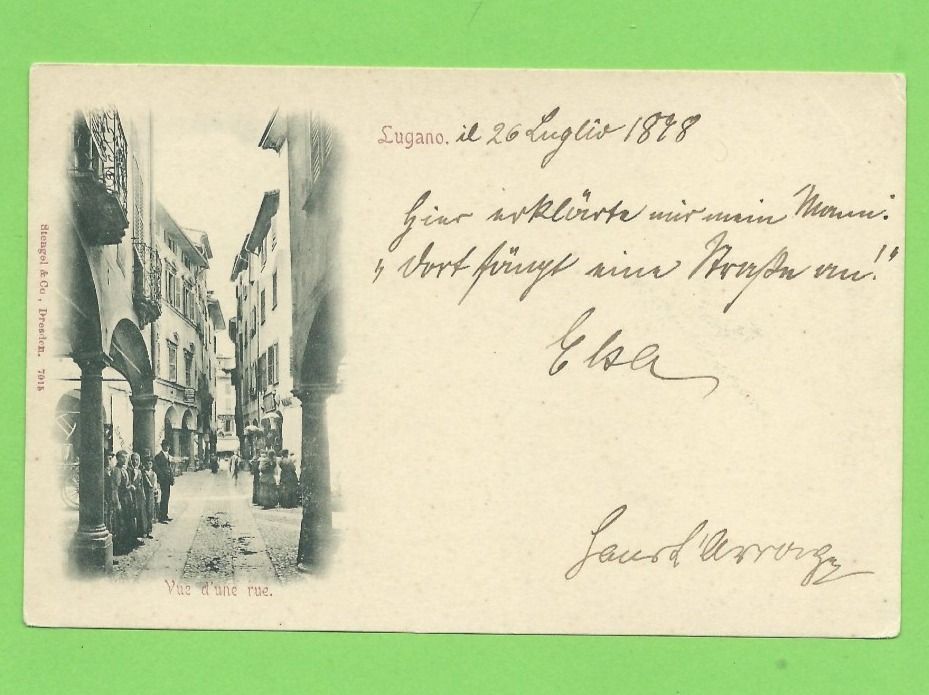 Lugano. il 26 Luglio 1898
Hier erklärte mir mein Mann:
„Dort fängt eine Straße an!"
Elsa
Hans L'Arronge
Vue d'une rue.
Stengel & Co, Dresden. 7915